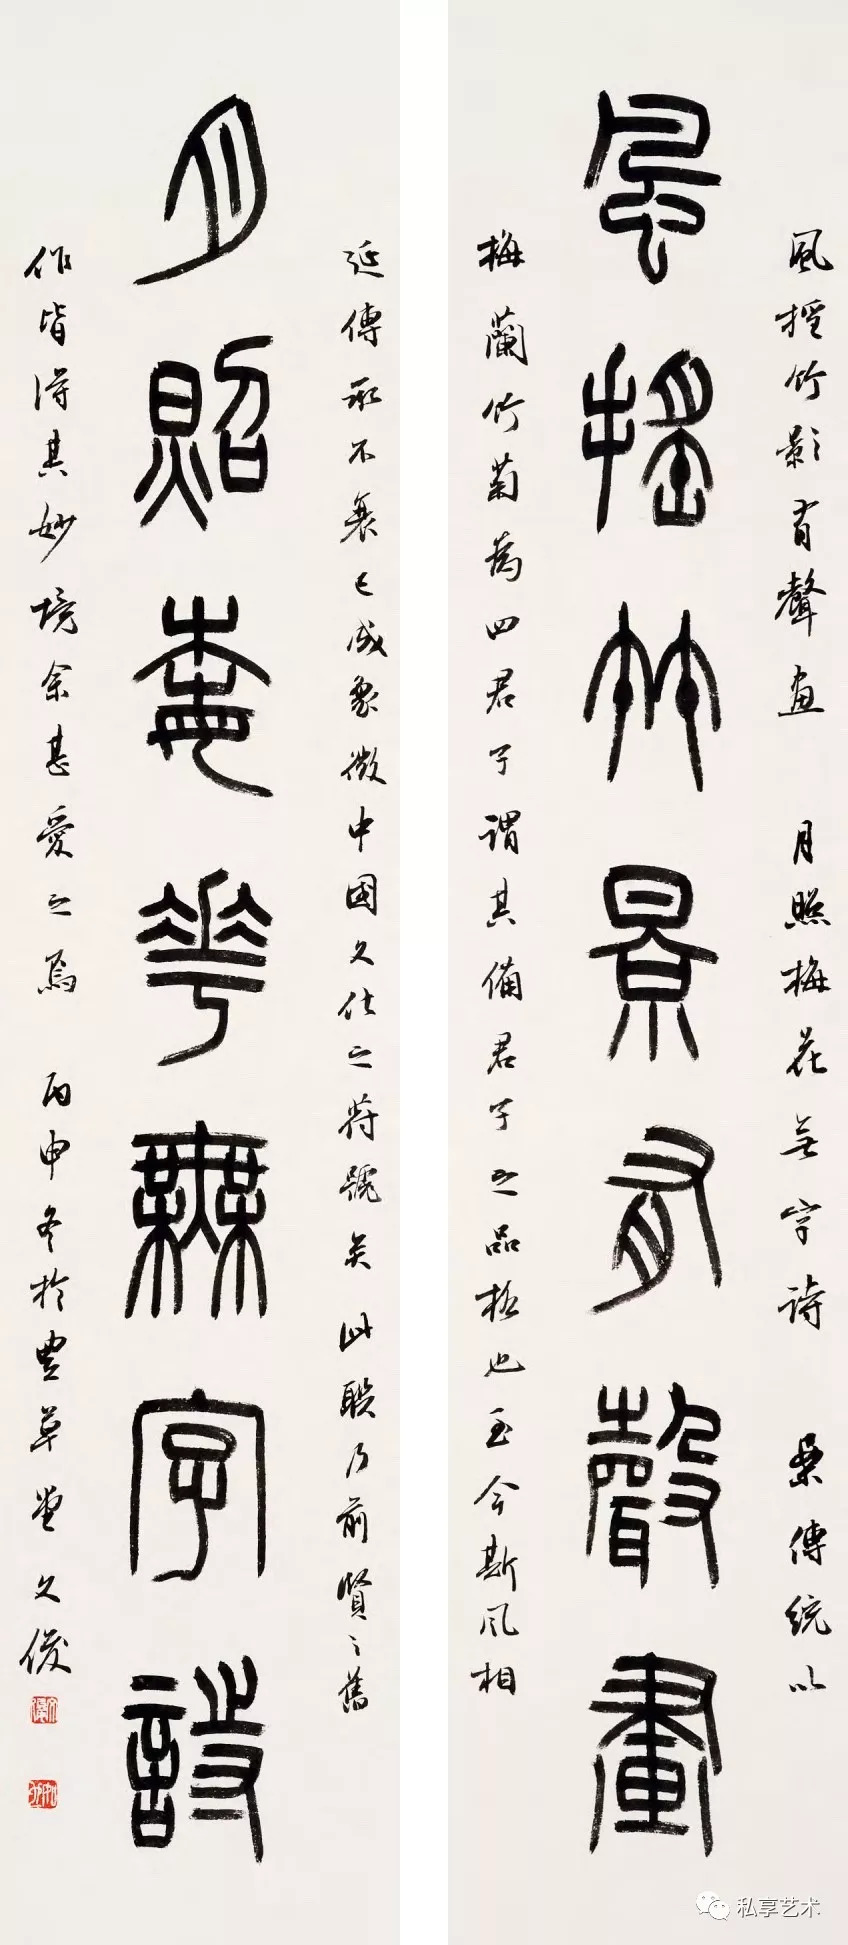 風搖竹景有聲畫
月照某華無字詩
風搖竹影有聲畫 月照梅花無字詩 傳統以
梅蘭竹菊為四君子謂其備君子之品格也至今斯風相
延傳承不衰已成象徵中國文化之符號矣 此聯乃前賢之舊
作皆得其妙境余甚愛之焉 丙申冬於豐草堂文俊
私享艺术